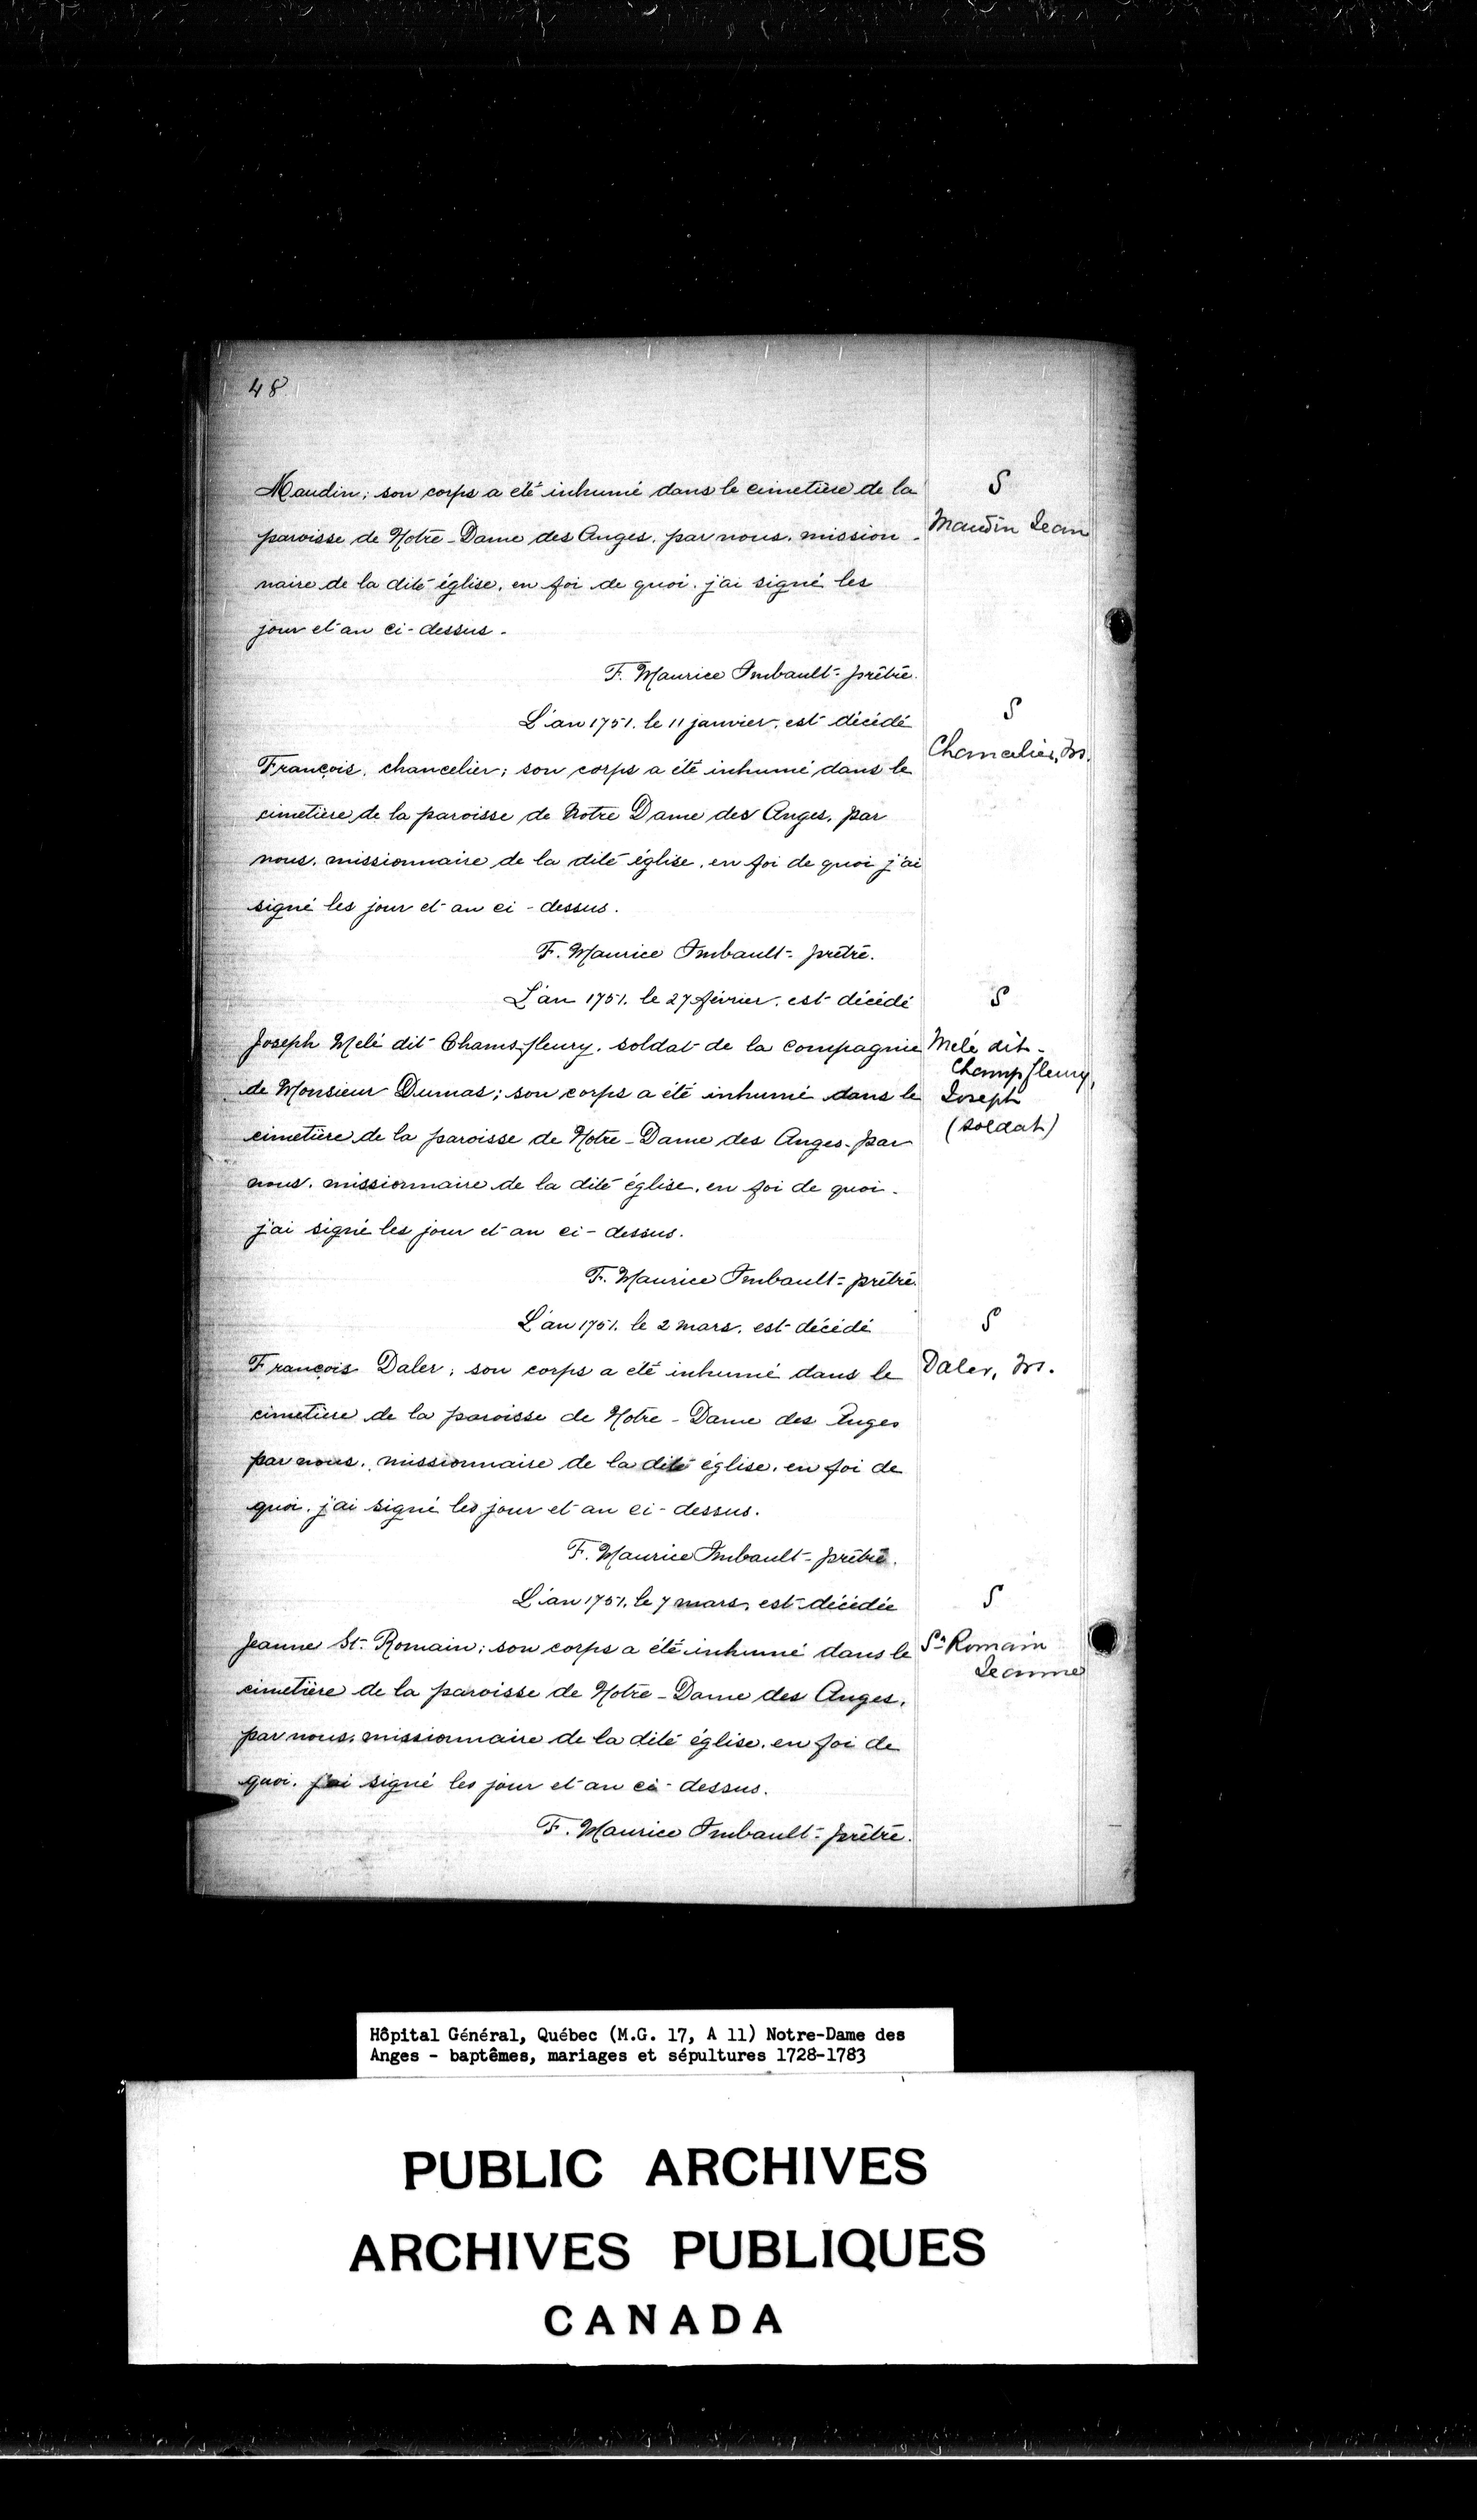 48
Maudin; son corps a été inhumé dans le cimetière de la
S
Maudin Jean
paroisse de Notre-Dame des Anges, par nous, mission-
naire de la dite église, en foi de quoi, j'ai signé les
jour et an ci-dessus.
F. Maurice Imbault - prêtre.
L'an 1751, le 11 janvier, est décédé
S
Chancelier, Frs.
François, chancelier; son corps a été inhumé dans le
cimetière de la paroisse de Notre Dame des Anges, par
nous, missionnaire de la dite église, en foi de quoi j'ai
signé les jour et an ci-dessus.
F. Maurice Imbault - prêtre.
L'an 1751, le 27 février, est décédé
S
Joseph Melé dit Chamsfleury, soldat de la compagnie
Melé dit-
Champfleury,
de Monsieur Dumas; son corps a été inhumé dans le
Joseph
(soldat)
cimetière de la paroisse de Notre-Dame des Anges, par
nous, missionnaire de la dite église, en foi de quoi
j'ai signé les jour et an ci-dessus.
F. Maurice Imbault - prêtre.
L'an 1751, le 2 mars, est décédé
S
François Daler; son corps a été inhumé dans le
Daler, Frs.
cimetière de la paroisse de Notre-Dame des Anges
par nous, missionnaire de la dite église, en foi de
quoi, j'ai signé les jour et an ci-dessus.
F. Maurice Imbault - prêtre.
L'an 1751, le 7 mars, est décédée
S
Jeanne St-Romain; son corps a été inhumé dans le
St Romain
Jeanne
cimetière de la paroisse de Notre-Dame des Anges,
par nous, missionnaire de la dite église, en foi de
quoi, j'ai signé les jour et an ci-dessus.
F. Maurice Imbault - prêtre.
Hôpital Général, Québec (M.G. 17, A 11) Notre-Dame des
Anges - baptêmes, mariages et sépultures 1728-1783
PUBLIC ARCHIVES
ARCHIVES PUBLIQUES
CANADA